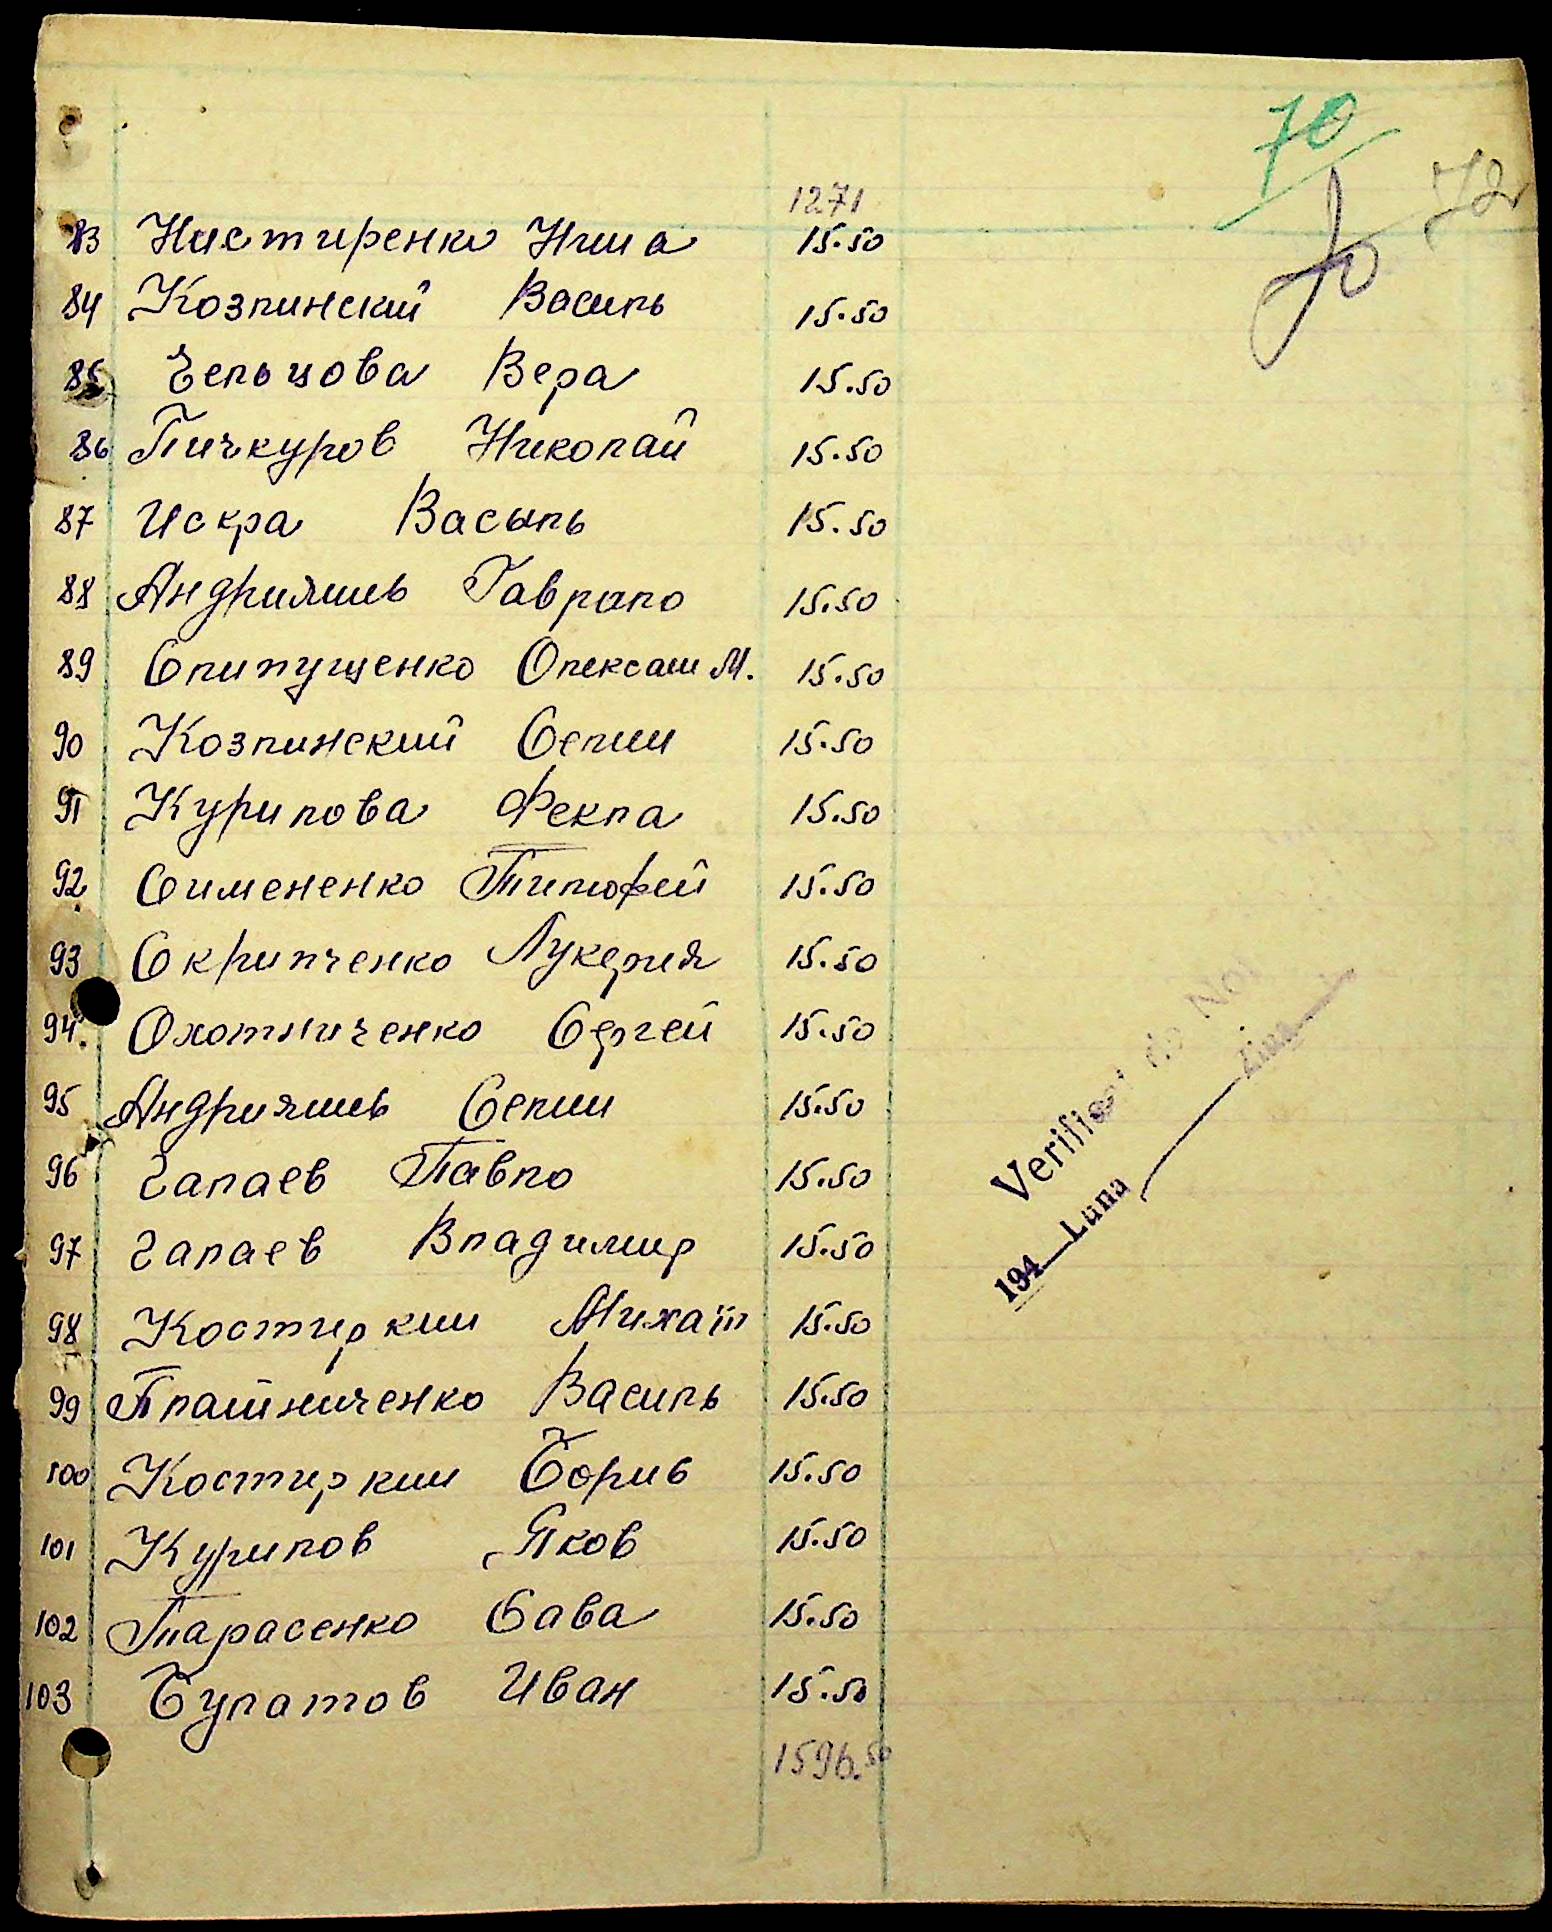 70
70 72
1271
83 Нистиренко Нина 15.50
84 Козлинский Василь 15.50
85 Чельцова Вера 15.50
86 Пичкуров Николай 15.50
87 Искра Васыль 15.50
88 Андрияшь Гаврило 15.50
89 Слипущенко Олексаш М. 15.50
90 Козлинский Семин 15.50
91 Курилова Фекла 15.50
92 Симененко Тимофей 15.50
93 Скрипченко Лукерия 15.50
94. Охотниченко Сергей 15.50
95 Андрияшь Семин 15.50
96 Чапаев Павло 15.50
97 Чапаев Владимир 15.50
98 Костиркин Михаїл 15.50
99 Плашниченко Василь 15.50
100 Костиркин Борис 15.50
101 Курилов Яков 15.50
102 Тарасенко Сава 15.50
103 Булатов Иван 15.50
1596.50
Verificat de Noi
194 Luna Ziua